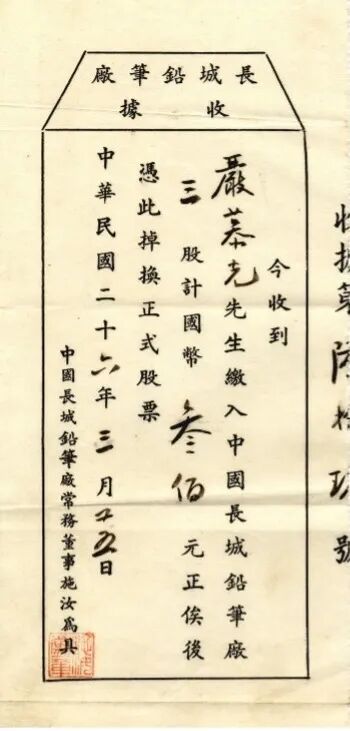 收據第陸拾玖號
長城鉛筆廠
收據
今收到
嚴慕光先生繳入中國長城鉛筆廠
三股計國幣叁佰元正俟後
憑此掉換正式股票
中華民國二十六年三月五日
中國長城鉛筆廠常務董事施汝為具